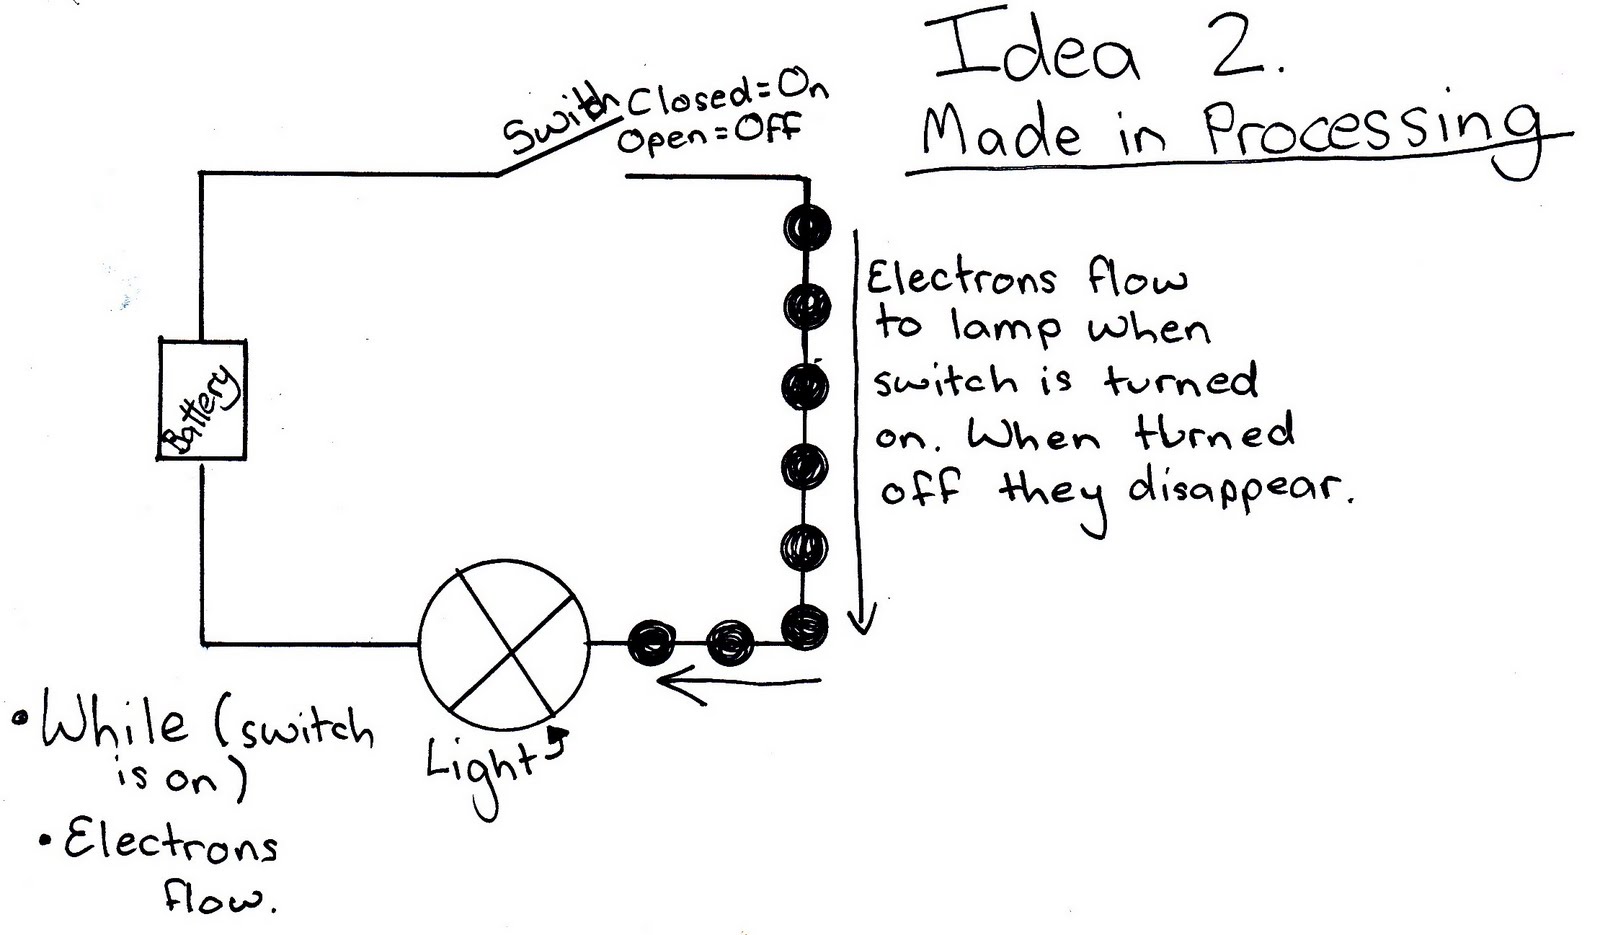 Idea 2.
Made in Processing
Switch
Closed=On
Open=Off
Electrons flow
to lamp when
switch is turned
on. When turned
off they disappear.
Battery
Light
• While (switch
is on)
• Electrons
flow.